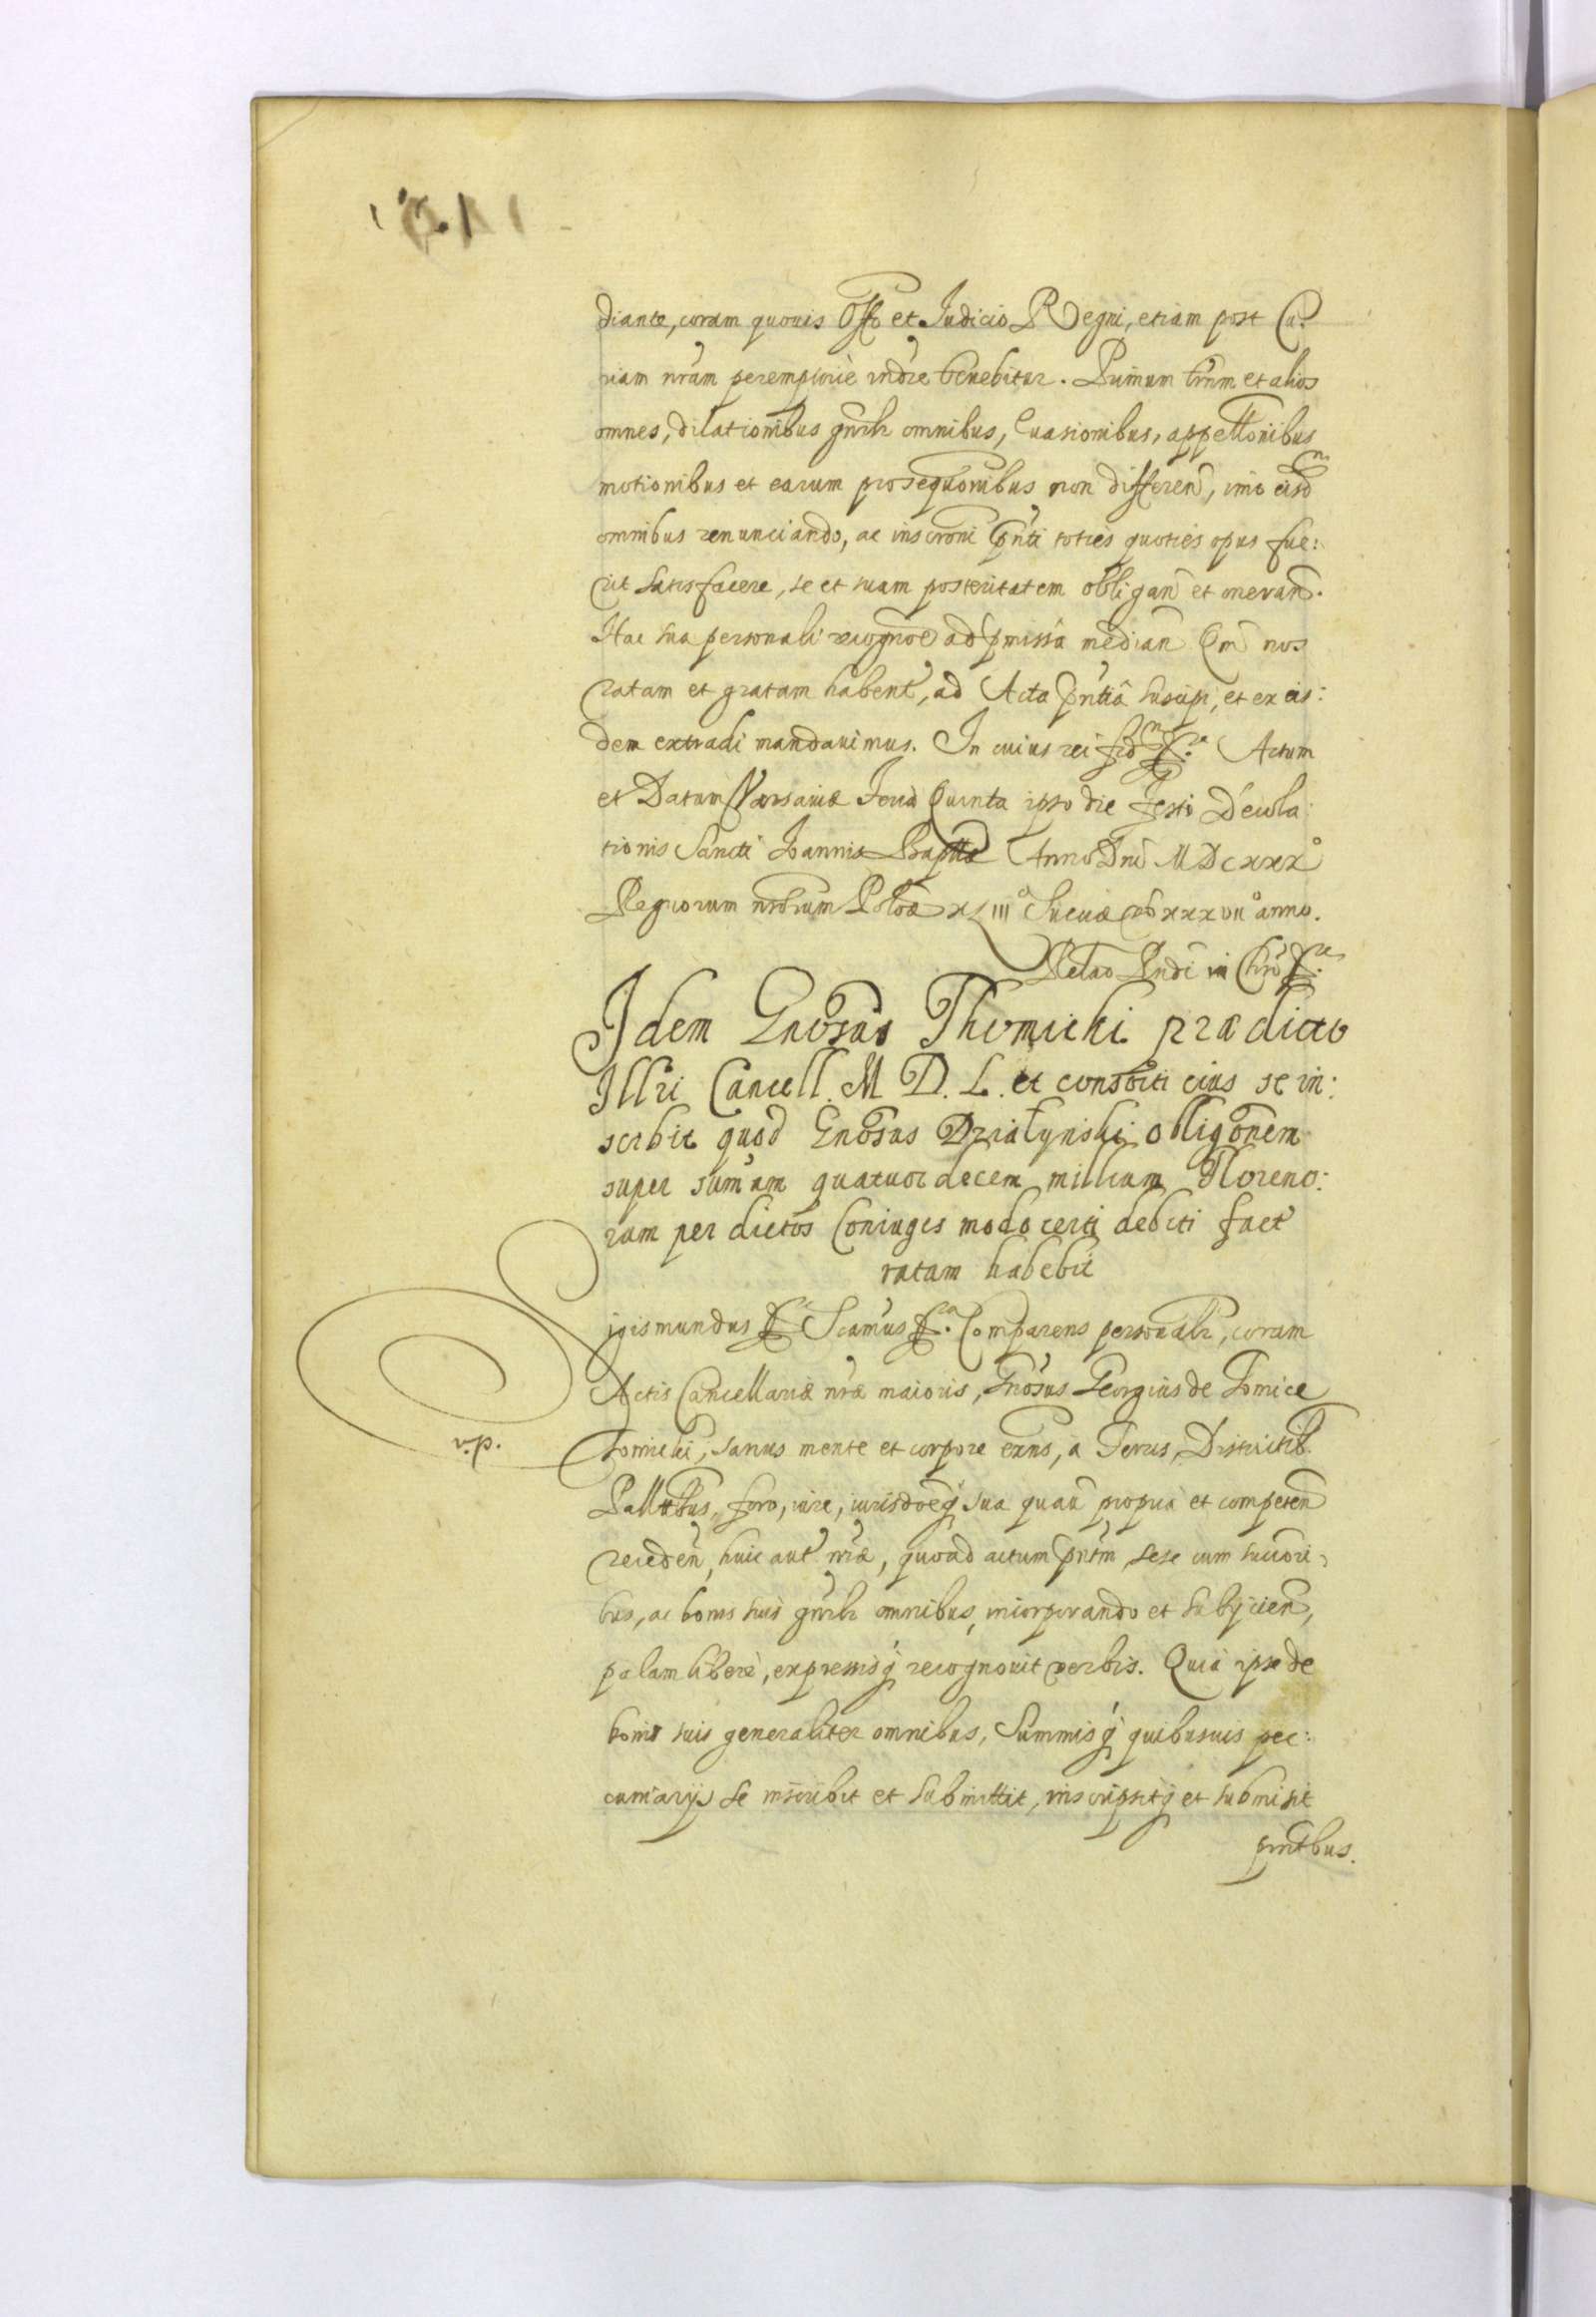 diante, coram quouis Offo et Judicio Regni, etiam post Cu:
riam nram peremptoriè rndre tenebitur. Primum trnm et alios
omnes, dilationibus gnrlr omnibus, Euasionibus, appellonibus
motionibus et earum prosequonibus non differen, imò eisd
omnibus renunciando, ac inscroni pnti toties quoties opus fue:
rit satisfacere, se et suam posteritatem obligan et oneran.
Hac sua personali recognoe ad pmissa median Qm nos
ratam et gratam haben, ad Acta pntia suscipi, et ex eis:
dem extradi mandauimus. In cuius rei fid Actum
et Datum Varsauiæ Feria Quinta ipso die Festi Decolla
tionis Sancti Joannis Baptæ Anno Dni MDCXXX°
Regnorum nrorum Poloæ XLIII° Sueciæ XXXVII° anno.
Relao Rndi in Chro
Idem Gnosus Thomicki prædicto
Illri Cancell. M D. L. et consorti eius se in:
scrbit quod Gnosus Działynski obligonem
super sumam quatuordecem millium Floreno:
rum per dictos Coniuges modo certi debiti fact
ratam habebit
igismundus Scamus Comparens personalr, coram
Actis Cancellariæ nræ maioris, Gnosus Georgius de Tomice
v.p.
Tomicki, sanus mente et corpore exns, a Terris, Districtib
Pallttbus, foro, iure, iurisdoeq sua quauis propria et competen
receden, huic aut nræ, quoad actum pntm sese cum succori
bus, ac bonis suis gnrlr omnibus, incorporando et subijcien,
palam liberè, expressisq recognouit verbis. Quia ipse de
bonis suis generaliter omnibus, Summisq quibusuis pec:
cuniarijs se inscribit et submittit, inscripsitq et submisit
pntbus.